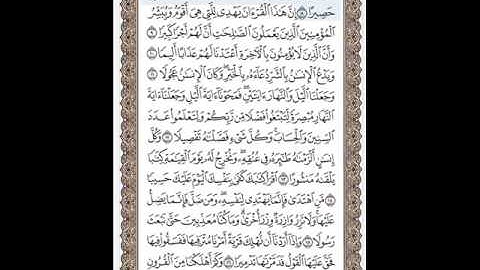 حَصِيرًا ۝٨ إِنَّ هَٰذَا ٱلْقُرْءَانَ يَهْدِى لِلَّتِى هِىَ أَقْوَمُ وَيُبَشِّرُ
ٱلْمُؤْمِنِينَ ٱلَّذِينَ يَعْمَلُونَ ٱلصَّٰلِحَٰتِ أَنَّ لَهُمْ أَجْرًا كَبِيرًا ۝٩
وَأَنَّ ٱلَّذِينَ لَا يُؤْمِنُونَ بِٱلْءَاخِرَةِ أَعْتَدْنَا لَهُمْ عَذَابًا أَلِيمًا ۝١٠
وَيَدْعُ ٱلْإِنسَٰنُ بِٱلشَّرِّ دُعَآءَهُۥ بِٱلْخَيْرِ وَكَانَ ٱلْإِنسَٰنُ عَجُولًا ۝١١
وَجَعَلْنَا ٱلَّيْلَ وَٱلنَّهَارَ ءَايَتَيْنِ فَمَحَوْنَآ ءَايَةَ ٱلَّيْلِ وَجَعَلْنَآ ءَايَةَ
ٱلنَّهَارِ مُبْصِرَةً لِّتَبْتَغُوا۟ فَضْلًا مِّن رَّبِّكُمْ وَلِتَعْلَمُوا۟ عَدَدَ
ٱلسِّنِينَ وَٱلْحِسَابَ وَكُلَّ شَىْءٍ فَصَّلْنَٰهُ تَفْصِيلًا ۝١٢ وَكُلَّ
إِنسَٰنٍ أَلْزَمْنَٰهُ طَٰٓئِرَهُۥ فِى عُنُقِهِۦ وَنُخْرِجُ لَهُۥ يَوْمَ ٱلْقِيَٰمَةِ كِتَٰبًا
يَلْقَىٰهُ مَنشُورًا ۝١٣ ٱقْرَأْ كِتَٰبَكَ كَفَىٰ بِنَفْسِكَ ٱلْيَوْمَ عَلَيْكَ حَسِيبًا
۝١٤ مَّنِ ٱهْتَدَىٰ فَإِنَّمَا يَهْتَدِى لِنَفْسِهِۦ وَمَن ضَلَّ فَإِنَّمَا يَضِلُّ
عَلَيْهَا وَلَا تَزِرُ وَازِرَةٌ وِزْرَ أُخْرَىٰ وَمَا كُنَّا مُعَذِّبِينَ حَتَّىٰ نَبْعَثَ
رَسُولًا ۝١٥ وَإِذَآ أَرَدْنَآ أَن نُّهْلِكَ قَرْيَةً أَمَرْنَا مُتْرَفِيهَا فَفَسَقُوا۟ فِيهَا
فَحَقَّ عَلَيْهَا ٱلْقَوْلُ فَدَمَّرْنَٰهَا تَدْمِيرًا ۝١٦ وَكَمْ أَهْلَكْنَا مِنَ ٱلْقُرُونِ